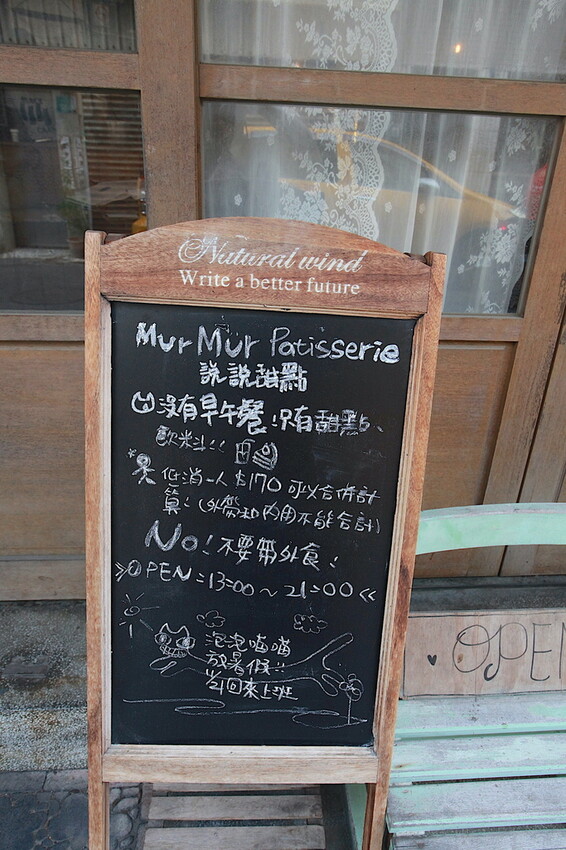 Natural wind
Write a better future
Mur Mur Patisserie
說說甜點
沒有早午餐!只有甜點、
飲料!!
低消一人$170可以合併計
算!(外帶和內用不能合計)
No!不要帶外食!
OPEN=13=00~21=00
泡泡喵喵
放暑假!!
回來上班
OPEN